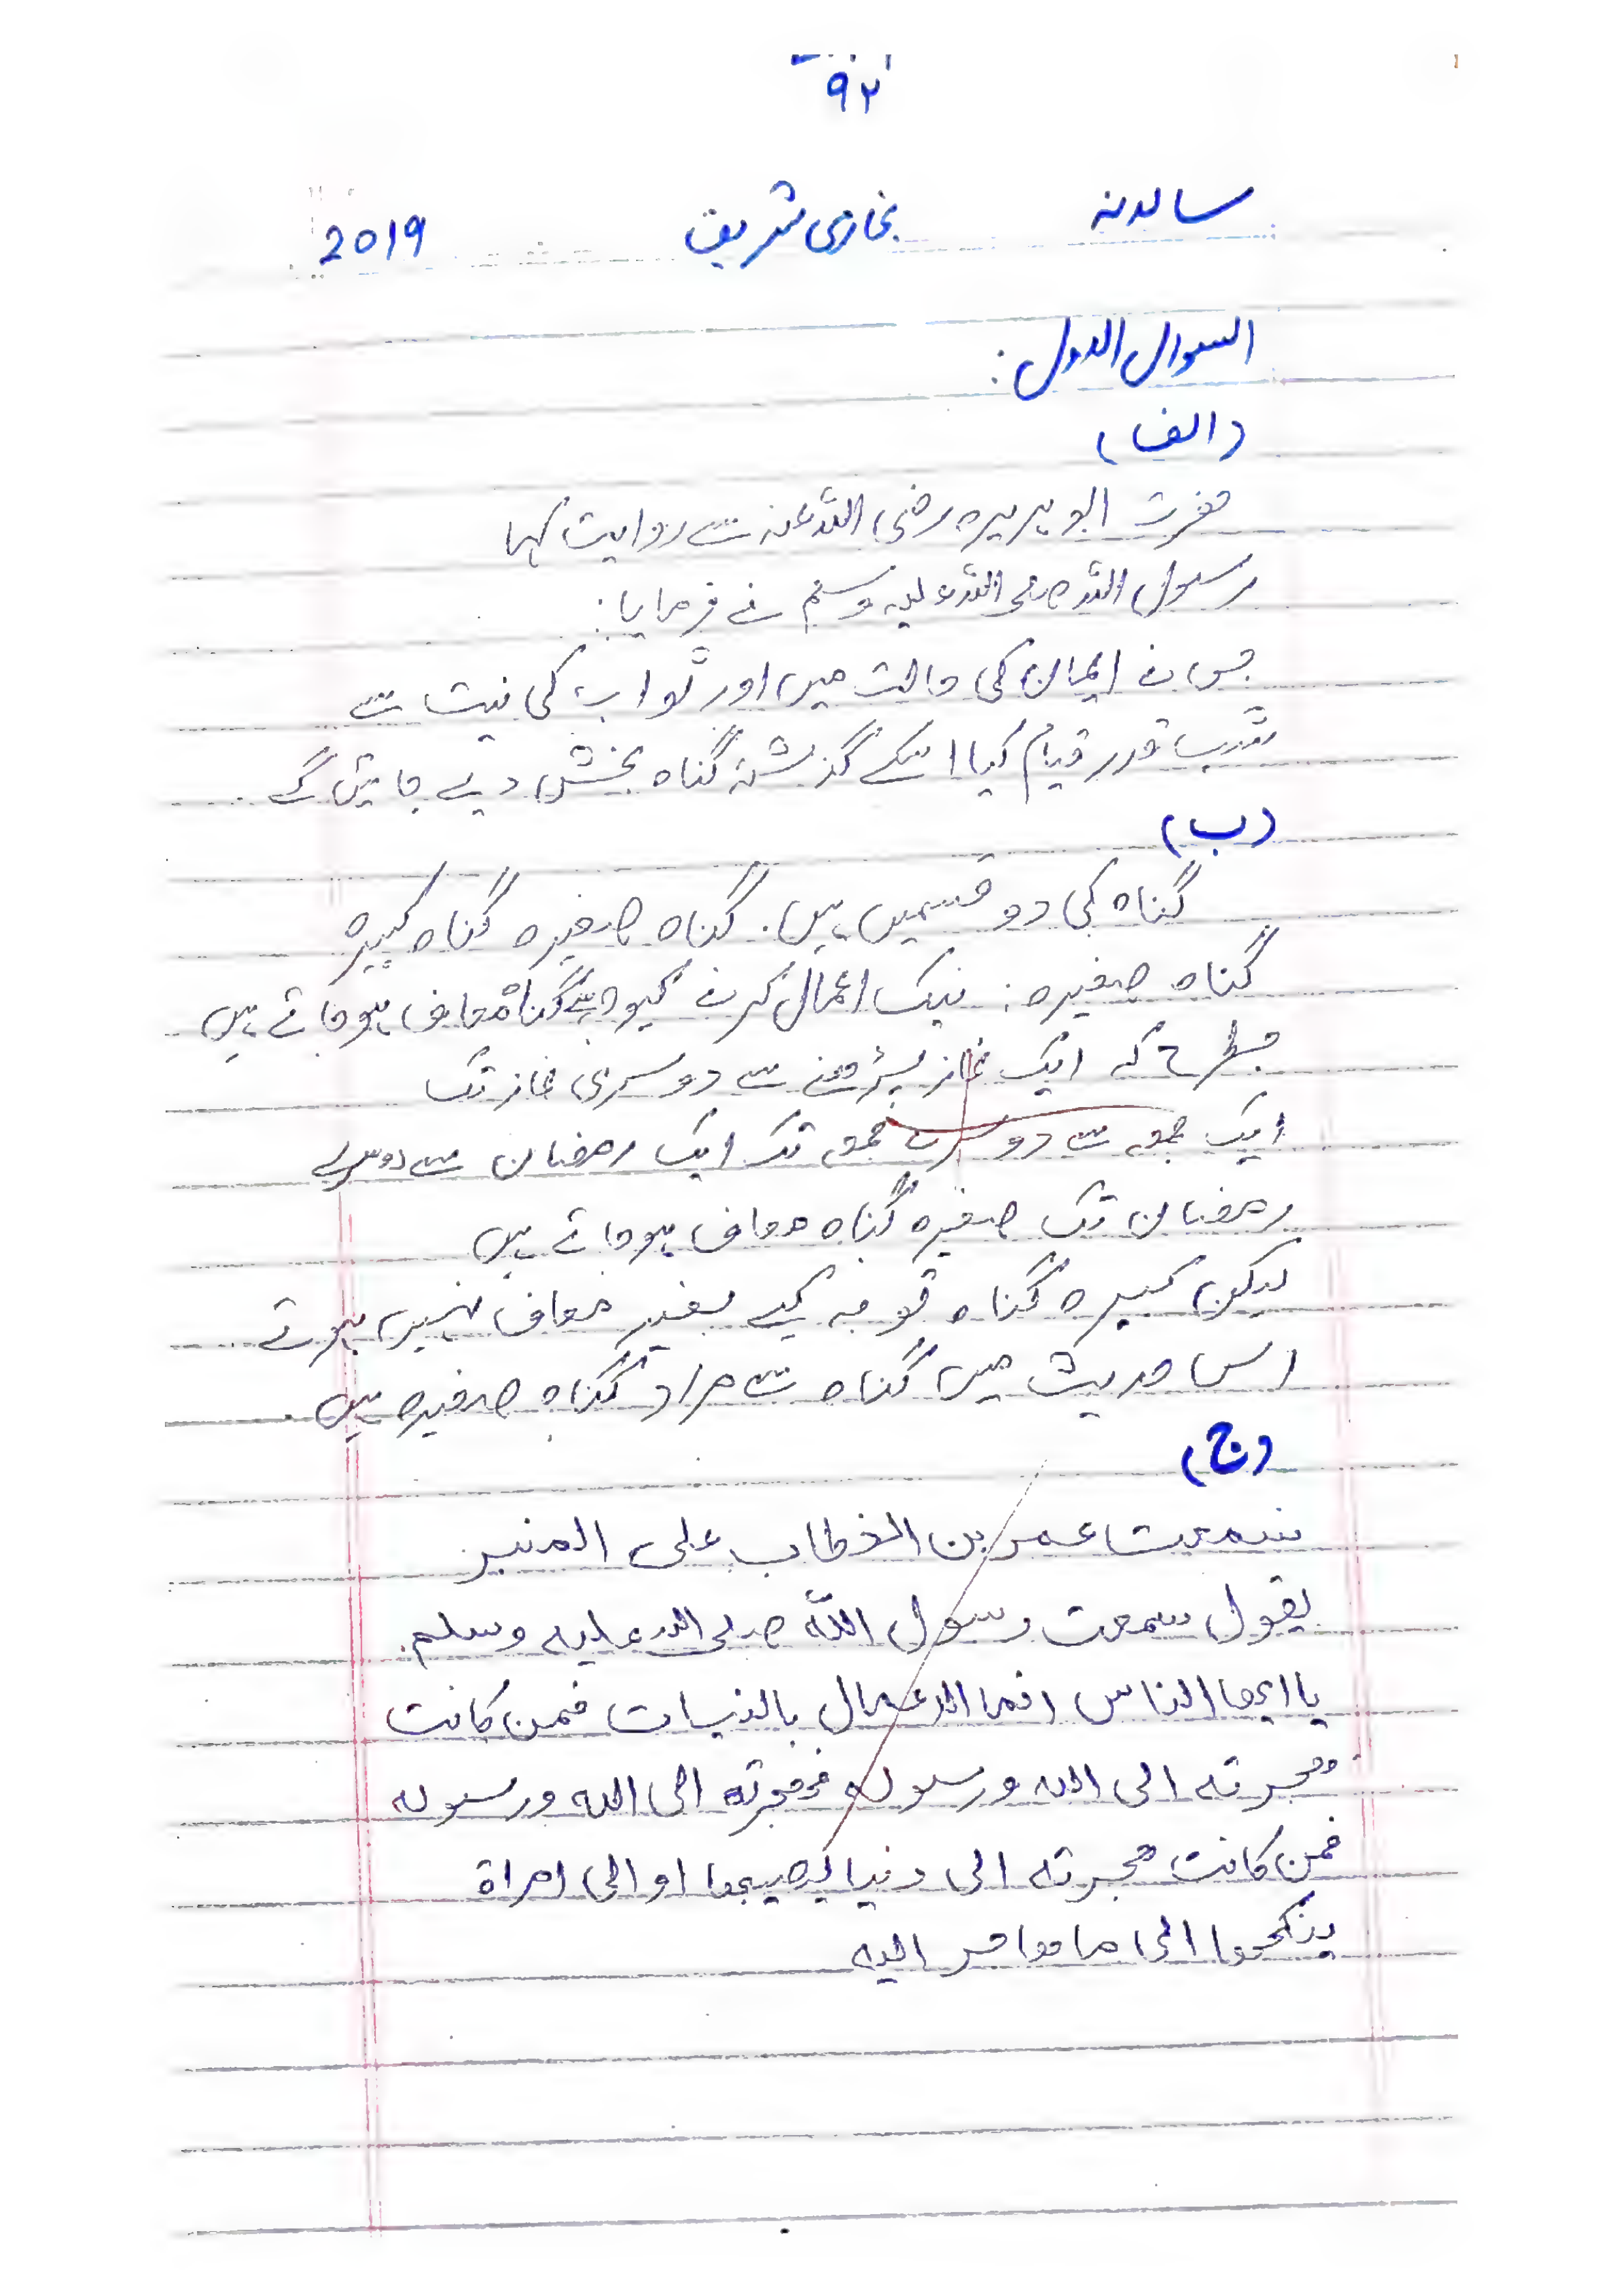 ۹۲
سالانہ بخاری شریف 2019
السوال الاول:
(الف)
حضرت ابو ہریرہ رضی اللہ عنہ سے روایت کہا
رسول اللہ صلی اللہ علیہ وسلم نے فرمایا:
جس نے ایمان کی حالت میں اور ثواب کی نیت سے
شب قدر قیام کیا اسکے گذشتہ گناہ بخش دیے جائیں گے
(ب)
گناہ کی دو قسمیں ہیں. گناہ صغیرہ گناہ کبیرہ
گناہ صغیرہ: نیک اعمال کرنے کیوجہ سے گناہ معاف ہو جاتے ہیں
جسطرح کہ ایک نماز پڑھنے سے دوسری نماز تک
ایک جمعہ سے دوسرے جمعہ تک ایک رمضان سے دوسرے
رمضان تک صغیرہ گناہ معاف ہو جاتے ہیں
لیکن کبیرہ گناہ توبہ کیے بغیر معاف نہیں ہوتے
اس حدیث میں گناہ سے مراد گناہ صغیرہ ہیں.
(ج)
سمعت عمر بن الخطاب على المنبر
يقول سمعت رسول الله صلى الله عليه وسلم
يا ايها الناس انما الاعمال بالنيات فمن كانت
هجرته الى الله ورسوله فهجرته الى الله ورسوله
فمن كانت هجرته الى دنيا يصيبها او الى امراة
ينكحها الى ما هاجر اليه